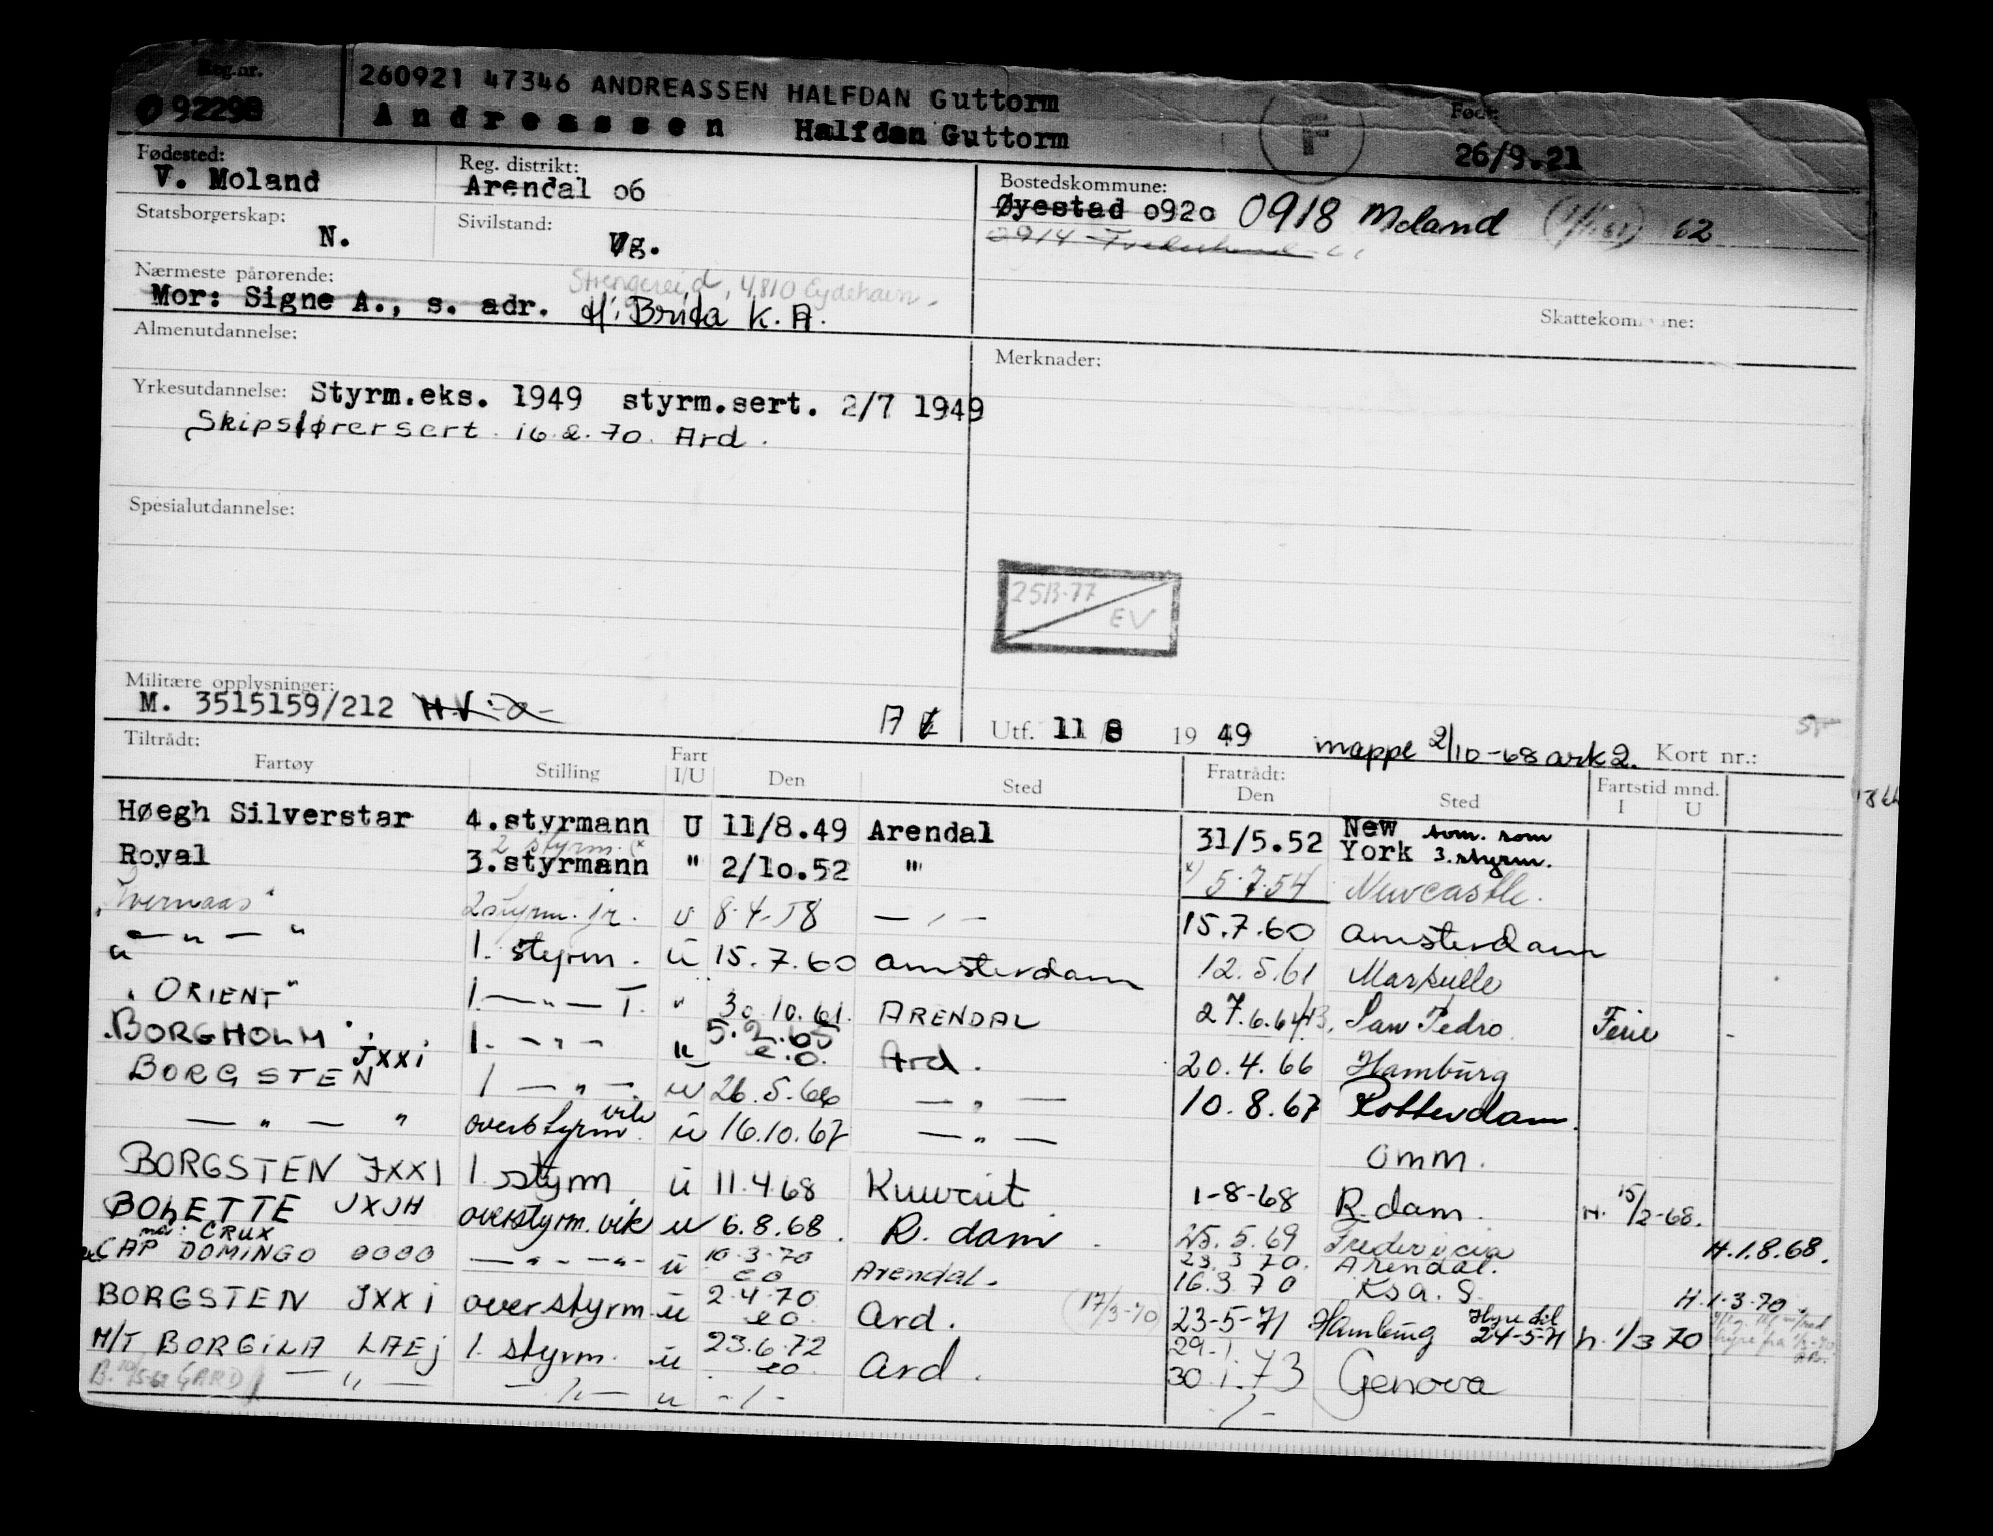 Reg.nr. 260921 47346 ANDREASSEN HALFDAN Guttorm Født:
092298 Andreassen Halfdan Guttorm F 26/9.21
Fødested: Reg. distrikt: Bostedskommune:
V. Moland Arendal 06 Øyestad 0920 0918 Moland 62
Statsborgerskap: Sivilstand: 0914
N. Ug.
Nærmeste pårørende: Strengereid, 4810 Eydehavn.
Mor: Signe A., s. adr. H: Brida K. A. Skattekommune:
Almenutdannelse: Merknader:
Yrkesutdannelse: Styrm.eks. 1949 styrm.sert. 2/7 1949
Skipsførersert. 16.2.70. Ard.
Spesialutdannelse:
25B-77
EV
Militære opplysninger:
M. 3515159/212 A Utf. 11 8 19 49 mappe 2/10-68 ark 2. Kort nr.:
Tiltrådt: Fartøy Stilling Fart I/U Den Sted Fratrådt: Den Sted Fartstid mnd. I U
Høegh Silverstar 4.styrmann U 11/8.49 Arendal 31/5.52 New York tom. som 3.styrm.
2 styrm. (x
Royal 3.styrmann " 2/10.52 " x) 5.7.54 Newcastle.
2 styrm. jr. U 8.4.58 — " — 15.7.60 Amsterdam
— " — " 1. styrm. ü 15.7.60 Amsterdam 12.5.61 Marseille
"ORIENT" 1. — " — T. " 30.10.61. ARENDAL 27.6.64 San Pedro Ferie -
"BORGHOLM" 1. — " — u 5.2.65 e.o. Ard. 20.4.66 Hamburg
BORGSTEN JXXI 1 — " — u 26.5.66 — " — 10.8.67 Rotterdam.
— " — " overstyrm. vik ü 16.10.67 — " — omm.
BORGSTEN JXXI 1. styrm ü 11.4.68 Kuwait. 1-8-68 R.dam. H. 15/2-68.
BOLETTE JXJH overstyrm. vik u 6.8.68. R. dam. 25.5.69 Fredericia H.1.8.68.
CRUX
CAP DOMINGO 0000 — " — " — ü 10.3.70 eo Arendal. 23.3.70. Arendal.
16.3.70 Ksa. S. H.1.3.70.
BORGSTEN JXXI overstyrm. ü 2.4.70 eo. Ard. (17/3-70) 23-5-71 Hamburg Hyre til 24-5-71 h. 1/3 70
M/T BORGILA LAEJ 1. styrm. ü 23.6.72 eo. Ard. 29.1. 30.1.73 Genova
— " — — " — u - " - - " -